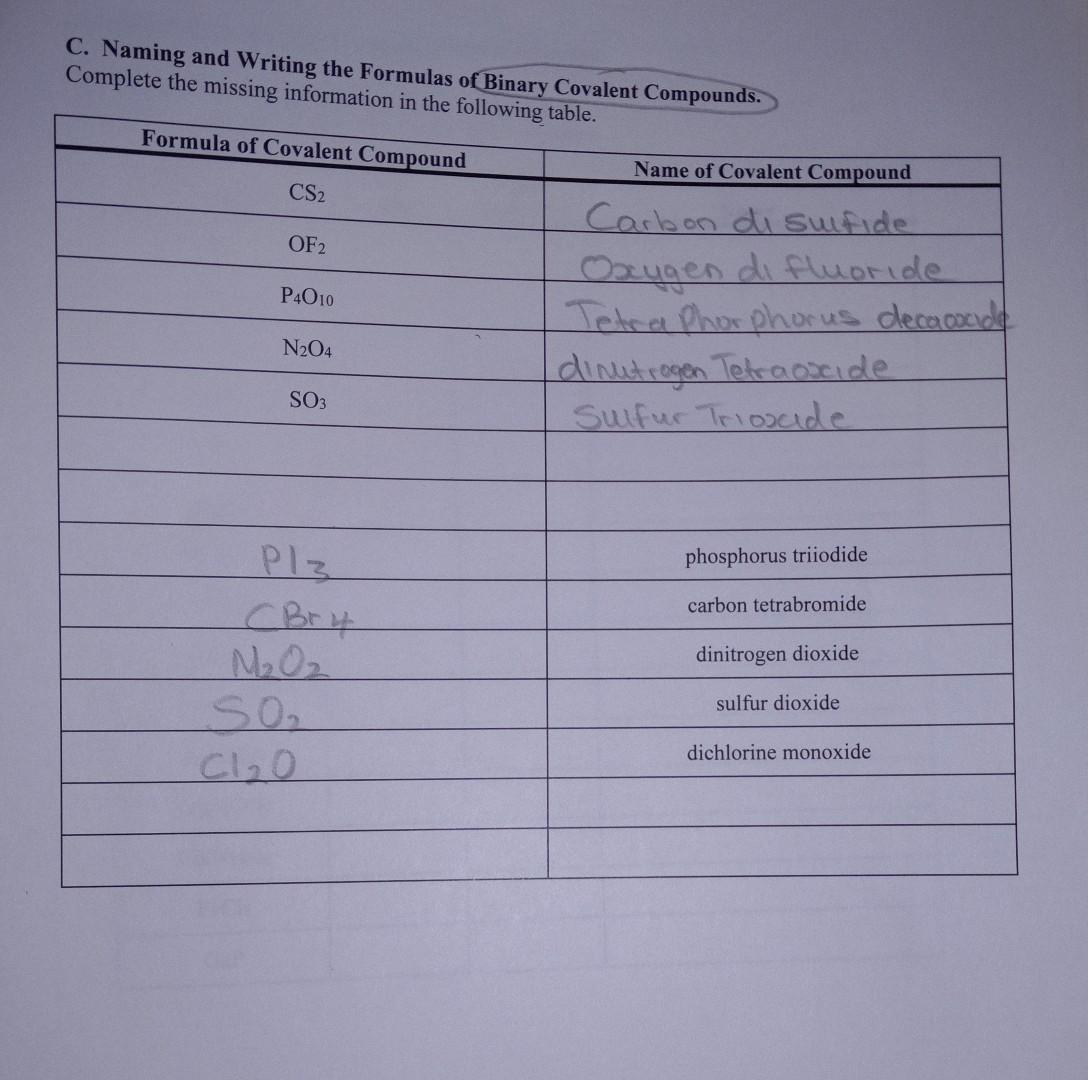 C. Naming and Writing the Formulas of Binary Covalent Compounds.
Complete the missing information in the following table.
Formula of Covalent Compound Name of Covalent Compound
CS2 Carbon disulfide
OF2 Oxygen difluoride
P4O10 Tetra Phorphorus decaoxide
N2O4 dinitrogen Tetraoxide
SO3 Sulfur Trioxide
PI3 phosphorus triiodide
CBr4 carbon tetrabromide
N2O2 dinitrogen dioxide
SO2 sulfur dioxide
Cl2O dichlorine monoxide